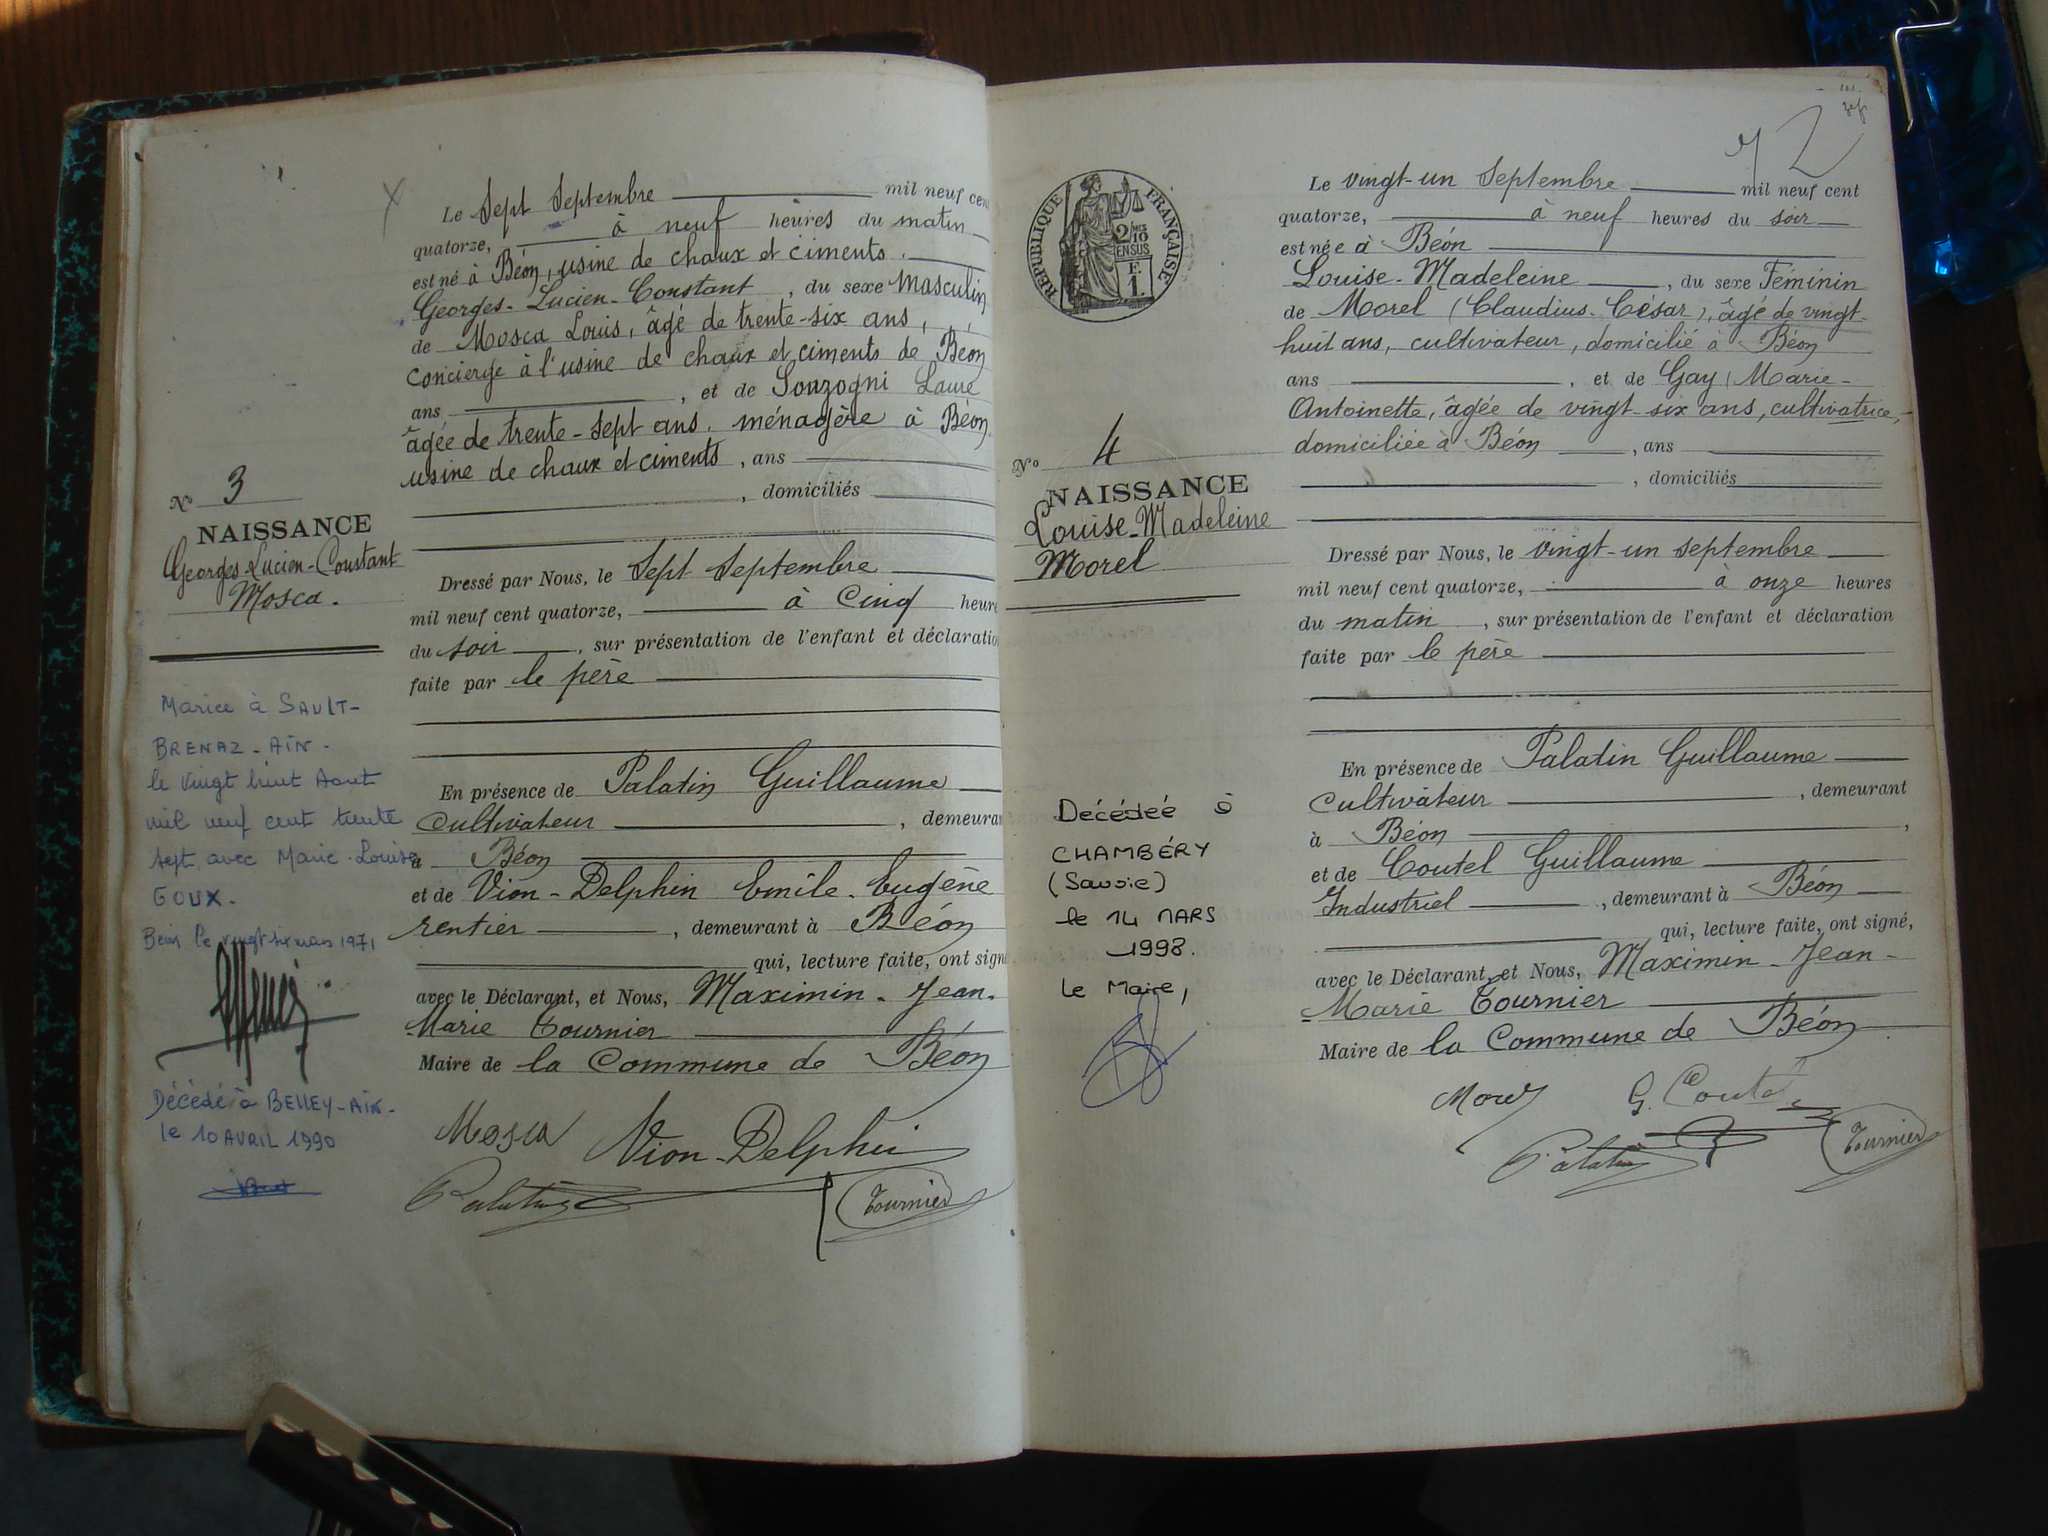 Le Sept Septembre mil neuf cen
quatorze, à neuf heures du matin
est né à Béon, usine de chaux et ciments.
Georges-Lucien-Constant, du sexe Masculin
de Mosca Louis, âgé de trente-six ans,
concierge à l'usine de chaux et ciments de Béon
ans, et de Sonzogni Laure
âgée de trente-sept ans, ménagère à Béon
usine de chaux et ciments, ans
, domiciliés
N° 3
NAISSANCE
Georges-Lucien-Constant
Mosca.
Dressé par Nous, le Sept Septembre
mil neuf cent quatorze, à Cinq heure
du soir, sur présentation de l'enfant et déclaratio
faite par le père
En présence de Palatin Guillaume
Cultivateur, demeuran
à Béon
et de Vion-Delphin Emile-Eugène
rentier, demeurant à Béon
qui, lecture faite, ont signé
avec le Déclarant, et Nous, Maximin-Jean-
Marie Tournier
Maire de la Commune de Béon
Mosca Vion-Delphin
Palatin Tournier
Mariee à SAULT-
BRENAZ-AIN-
le vingt huit Aout
mil neuf cent trente
sept avec Marie-Louise
GOUX-
Béon le vingt six mars 1971
Décédé à BELLEY-AIN-
le 10 AVRIL 1990
2
RÉPUBLIQUE FRANÇAISE
2/10
EN SUS
F.
1.
Le vingt-un Septembre mil neuf cent
quatorze, à neuf heures du soir
est née à Béon
Louise-Madeleine, du sexe Féminin
de Morel (Claudius-César), âgé de vingt-
huit ans, cultivateur, domicilié à Béon
ans, et de Gay Marie-
Antoinette, âgée de vingt-six ans, cultivatrice,
domiciliée à Béon, ans
, domiciliés
N° 4
NAISSANCE
Louise-Madeleine
Morel
Dressé par Nous, le vingt-un septembre
mil neuf cent quatorze, à onze heures
du matin, sur présentation de l'enfant et déclaration
faite par le père
En présence de Palatin Guillaume
Cultivateur, demeurant
à Béon,
et de Coutel Guillaume
Industriel, demeurant à Béon
qui, lecture faite, ont signé,
avec le Déclarant, et Nous, Maximin-Jean-
Marie Tournier
Maire de la Commune de Béon
Morel G. Coutel
Palatin Tournier
Décédée à
CHAMBÉRY
(Savoie)
le 14 MARS
1998.
Le Maire,